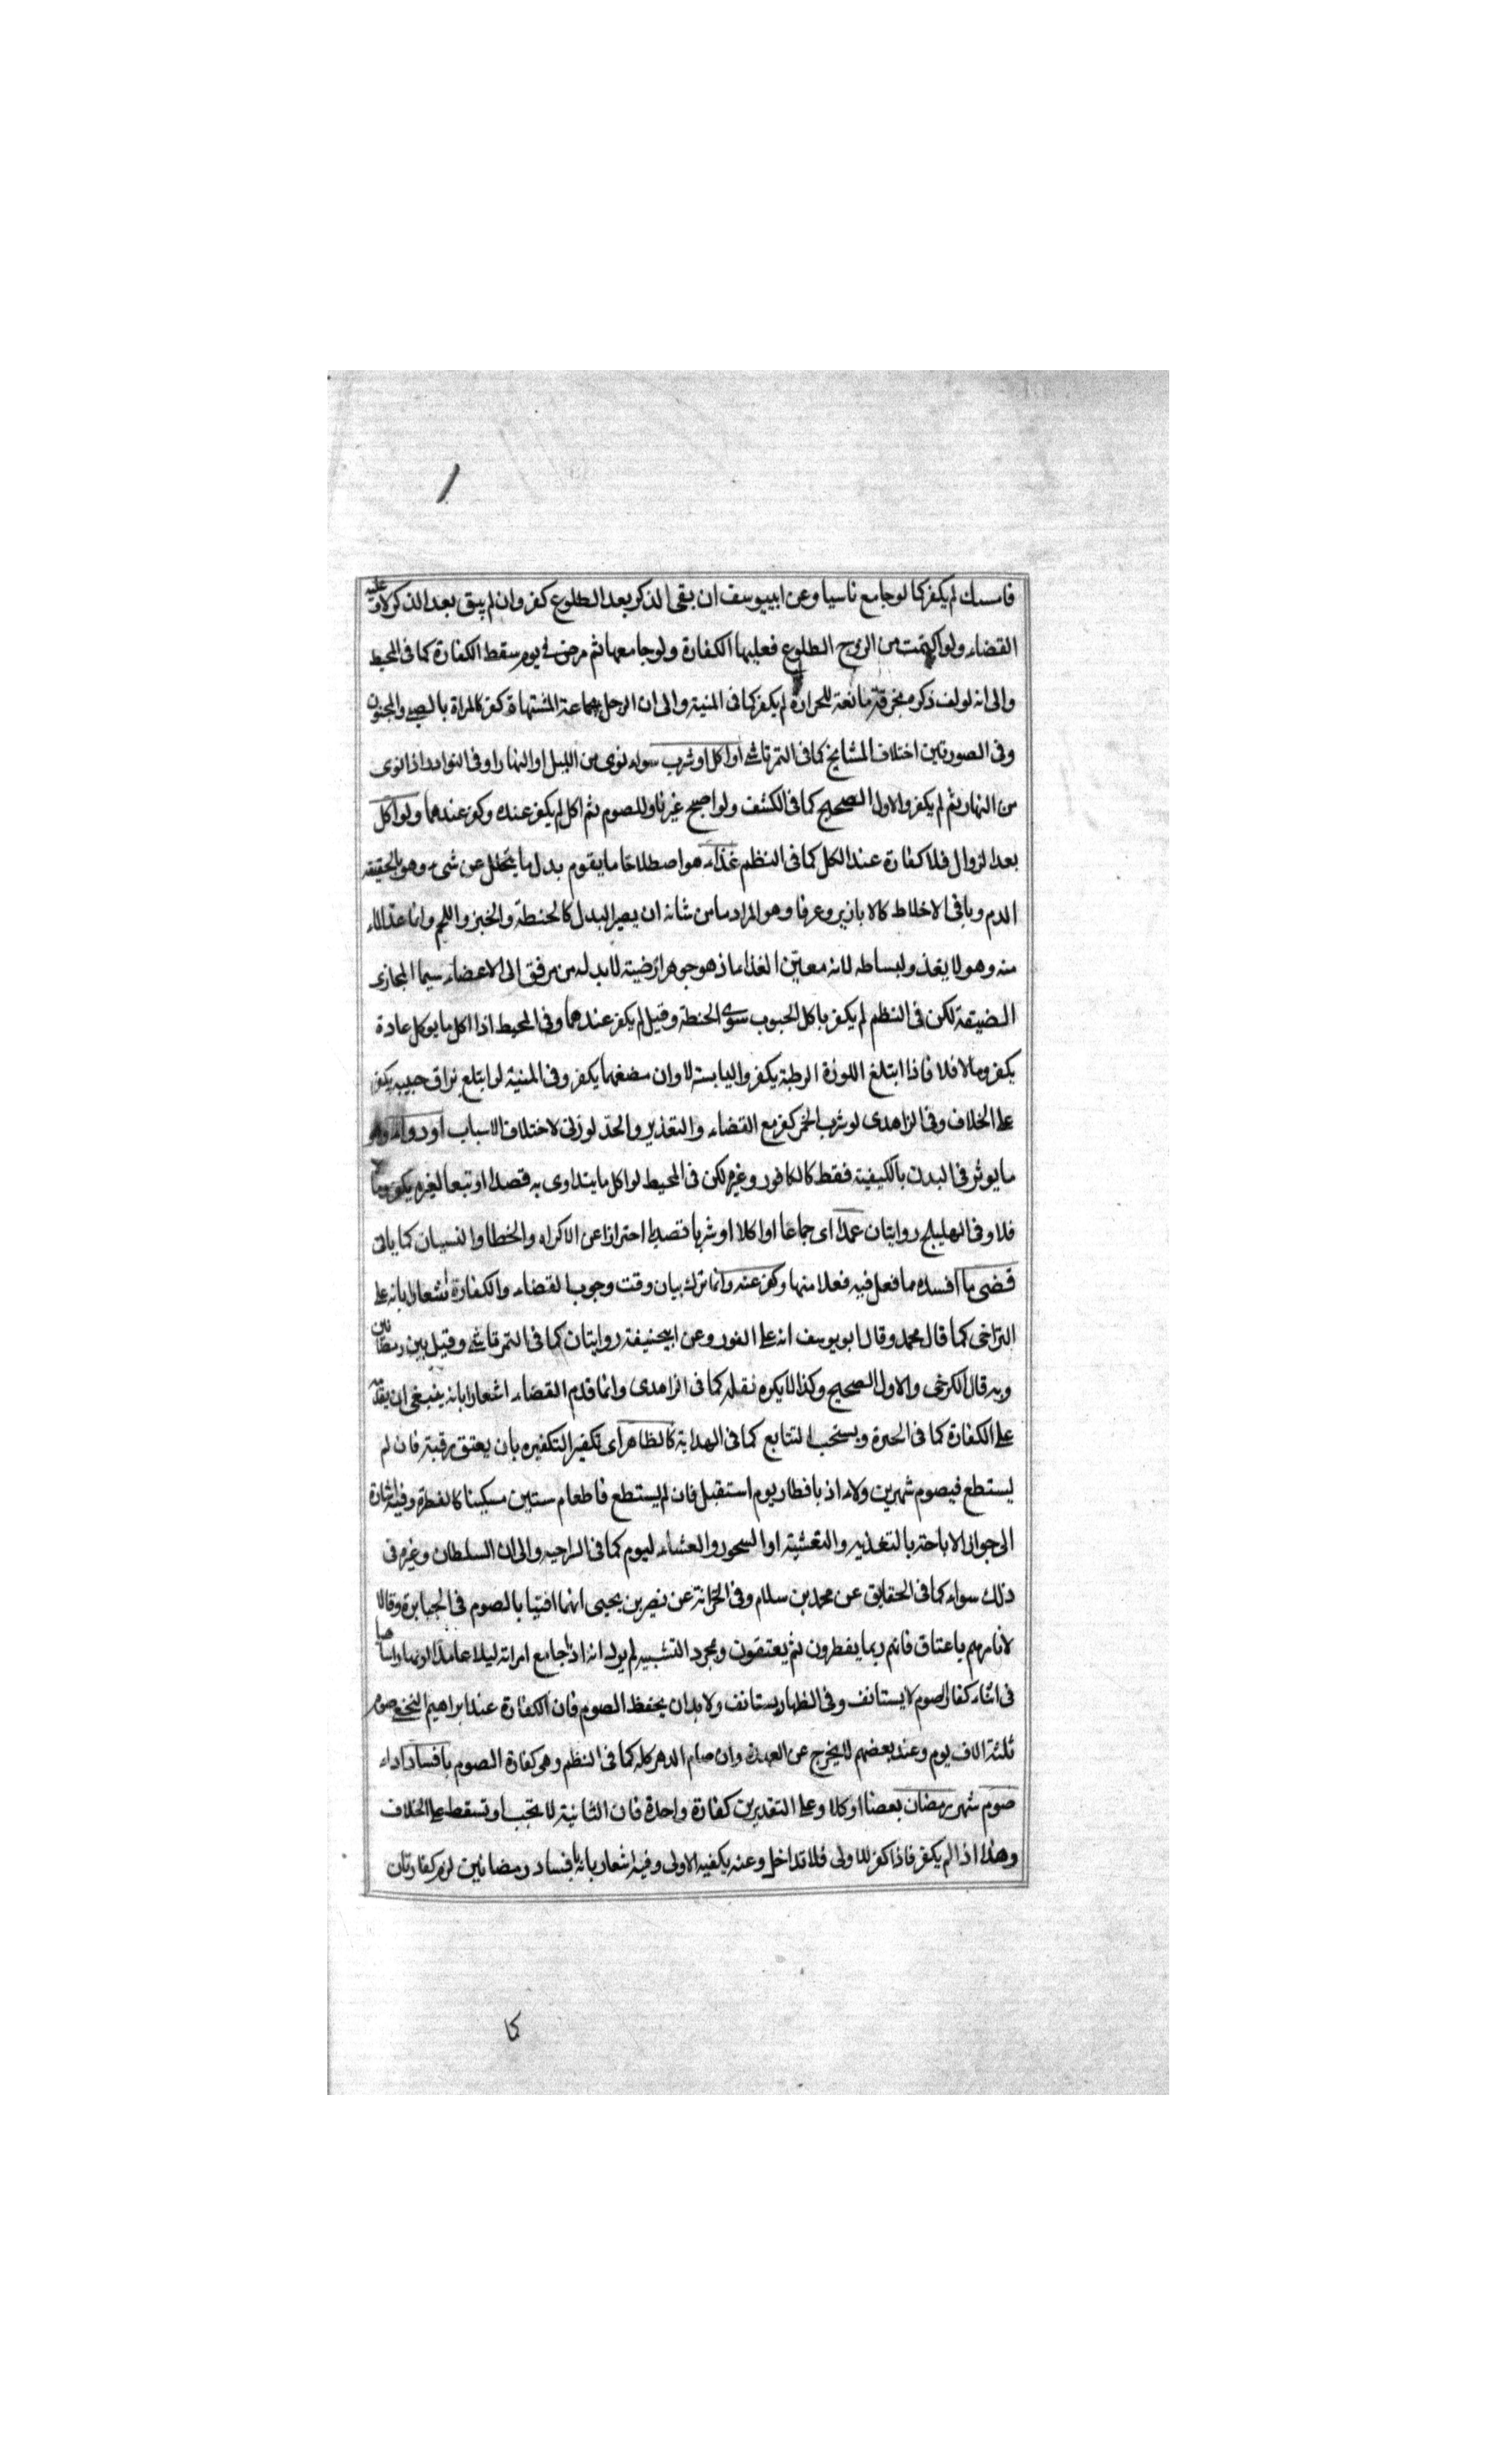 فامسك لم يكفر كما لو جامع ناسيا وعن ابييوسف ان بقى الذكر بعد الطلوع كفر وان لم يبق بعد الذكر لا وعليه
القضاء ولو اكتمت من الزوج الطلوع فعليها الكفارة ولو جامعها ثم مرض في يومه سقط الكفارة كما فى المحيط
والى انه لو لف ذكره بخرقة مانعة للحرارة لم يكفر كما فى المنية والى ان الرجل بجماعة المشتهاة كفر كالمراة بالصبي والمجنون
وفى الصورتين اختلاف المشايخ كما فى التمرتاشي او اكل او شرب سواء نوى من الليل او النهار او فى النوادر اذا نوى
من النهار ثم لم يكفر والاول الصحيح كما فى الكشف ولو اصبح غير ناو للصوم ثم اكل لم يكفر عنده وكفر عندهما ولو اكل
بعد الزوال فلا كفارة عند الكل كما فى النظم غذاء هو اصطلاحا ما يقوم بدل ما يتحلل عن شىء وهو بالحقيقة
الدم وباقى الاخلاط كالابازير وعرفا وهو المراد ما من شانه ان يصير البدل كالحنطة والخبز واللحم وانما عد الماء
منه وهو لا يغذ ولبساطه لانه معين الغذاء اذ هو جوهر ارضية لابد له من مرفق الى الاعضاء سيما المجارى
الضيقة لكن فى النظم لم يكفر باكل الحبوب سوى الحنطة وقيل لم يكفر عندهما وفى المحيط اذا اكل ما يوكل عادة
يكفر وما لا فلا فاذا ابتلغ اللوزة الرطبة يكفر واليابسة لا وان مضغهما يكفر وفى المنية لو ابتلع بزاق حبيبه يكفر
على الخلاف وفى الزاهدى لو شرب الخمر كفر مع القضاء والتعذير والحد لو زنى لاختلاف الاسباب او دواء وهو
ما يوثر فى البدن بالكيفية فقط كالكافور وغيره لكن فى المحيط لو اكل ما يتداوى به قصدا او تبعا لغيره يكفر وما
فلا وفى الهليلج روايتان عمدا اى جماعا او اكلا او شربا قصديا احترازا عن الاكراه والخطا والنسيان كما ياتى
قضى ما افسده مما فعل فيه فعلا منها وكفر عنه وانما ترك بيان وقت وجوب القضاء والكفارة اشعارا بانه على
التراخى كما قال محمد وقال ابو يوسف انه على الفور وعن ابيحنيفة روايتان كما فى التمرتاشي وقيل بين رمضانين
وبه قال الكرخى والاول الصحيح وكذا لا يكره نفله كما فى الزاهدى وانما قدم القضاء اشعارا بانه ينبغى ان يقدمه
على الكفارة كما فى الحرة ويستحب التتابع كما فى الهداية كالظاهر اى تكفير التكفيره بان يعتق رقبة فان لم
يستطع فيصوم شهرين ولاء اذ بافطار يوم استقبل فان لم يستطع فاطعام ستين مسكينا كالفطرة وفيه اشارة
الى جواز الاباحة بالتغذيه والتعشية او السحور والعشاء ليوم كما فى السراجيه والى ان السلطان وغيره فى
ذلك سواء كما فى الحقايق عن محمد بن سلام وفى الخزانة عن نصير بن يحيى انهما افتيا بالصوم فى الجبابرة وقالا
لا نامرهم باعتاق فانهم ربما يفطرون ثم يعتقون ومجرد التشبيه لم يرد انه اذا جامع امراته ليلا عامدا او نهارا ناسيا
فى اثناء كفارة الصوم لا يستانف وفى الظهار يستانف ولا بد ان يحفظ الصوم فان الكفارة عند ابراهيم النخعي صوم
ثلثة الاف يوم وعند بعضهم لا يخرج عن العهدة وان صام الدهر كله كما فى النظم وهى كفارة الصوم بافساد اداء
صوم شهر رمضان بعضا او كلا وعلى التقديرين كفارة واحدة فان الثانية لا تجب او تسقط على الخلاف
وهذا اذا لم يكفر فاذا كفر للاولى فلا تداخل وعنه يكفيه الاولى وفيه اشعار بانه بافساد رمضانين لزم كفارتان
كما